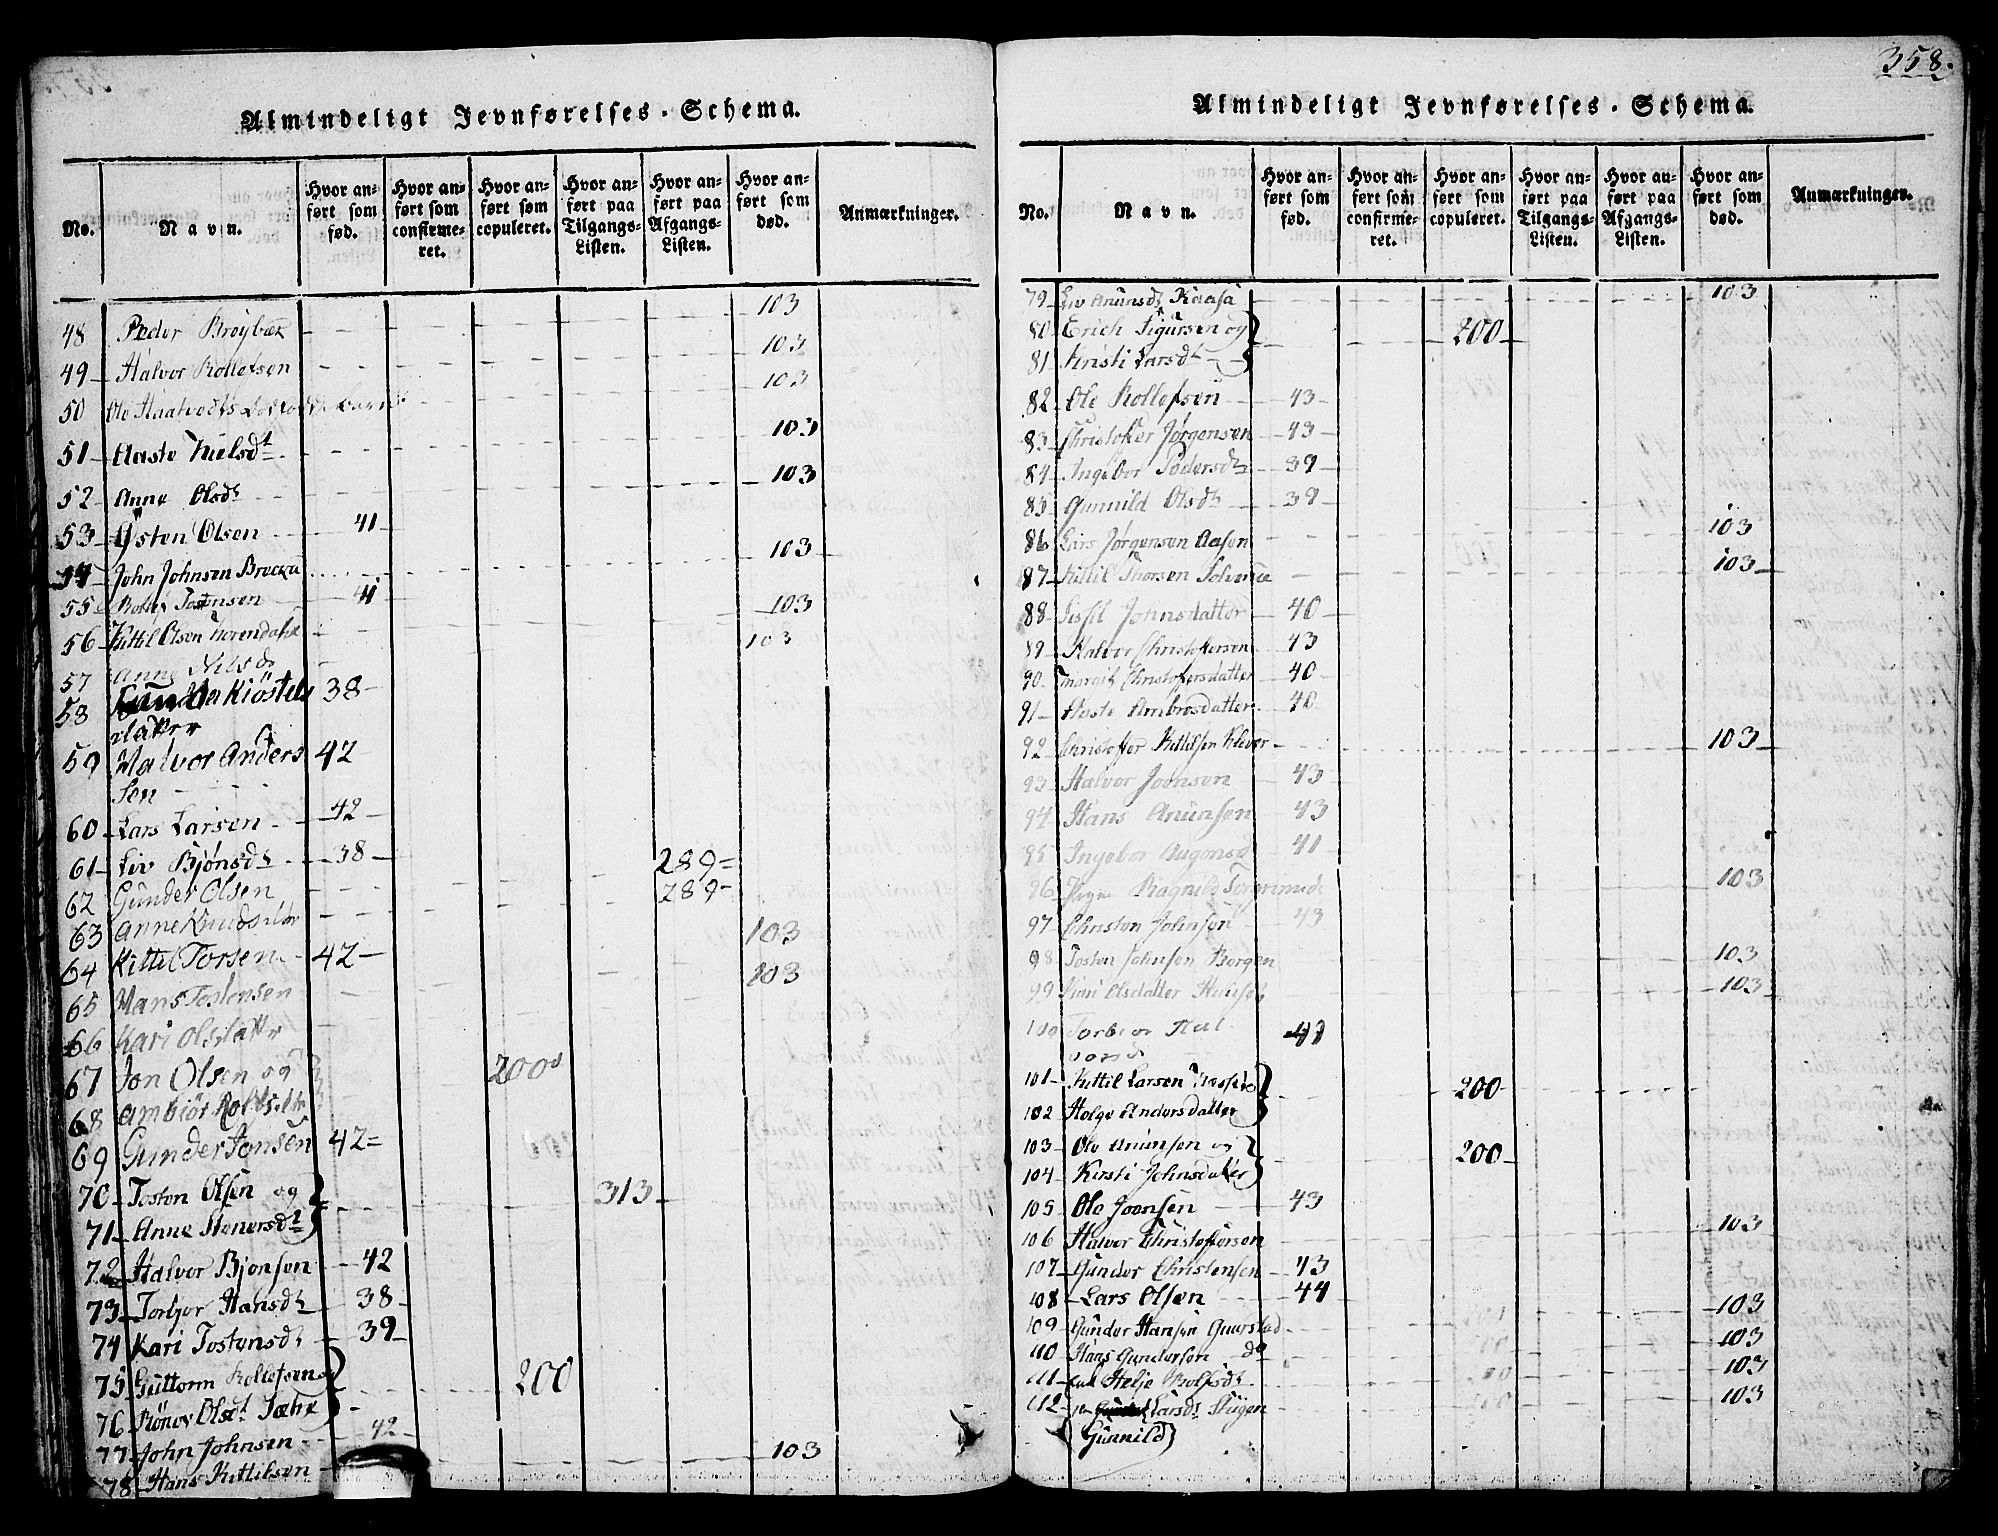 358.
Almindeligt Jevnførelses-Schema.
No. Navn. Hvor anført som fød. Hvor anført som confirmeret. Hvor anført som copuleret. Hvor anført paa Tilgangs-Listen. Hvor anført paa Afgangs-Listen. Hvor anført som død. Anmærkninger.
48 Peder Brøybæk 103
49 Halvor Rollefsen 103
50 Ole Haatvedts 103
51 Aaste Nielsdt 103
52 Anne Olsdt 103
53 Østen Olsen 41
54 John Johnsen 103
55 Tostensen 41 103
56 Kittil Olsen 103
57 Anne Nilsd
58 Kiøstels 38
datter
59 Halvor Anders 42
sen
60 Lars Larsen 42
61 Liv Bjønsdt 38 289
62 Gunder Olsen 289
63 Anne Knudsdtr 103
64 Kittil Torsen 42
65 Hans Tostensen 103
66 Kari Olsdatter
67 Jon Olsen og 200
68 Ambiør
69 Gunder Jonsen 42
70 Tosten Olsen og 313
71 Anne Stenersdt
72 Halvor Bjønsen 42
73 Torbjør Hansdt 38
74 Kari Tostensdt 39
75 Guttorm Rollefsen 200
76 Rønov Olsdt
77 John Johnsen 42
78 Hans Kittilsen 103
Almindeligt Jevnførelses-Schema.
No. Navn. Hvor anført som fød. Hvor anført som confirmeret. Hvor anført som copuleret. Hvor anført paa Tilgangs-Listen. Hvor anført paa Afgangs-Listen. Hvor anført som død. Anmærkninger.
79 Liv Anunsdt Kaasa 103
80 Erich Sigursen og 200
81 Kristi Larsdt
82 Ole Rollefsen 43
83 Christofer Jørgensen 43
84 Ingebor Pedersdt 39
85 Gunnild Olsdt 39
86 Lars Jørgensen Aasen 103
87 Kittil Thorsen 103
88 Sissil Johnsdatter 40
89 Halvor Christofersen 43
90 Margit Christofersdatter 40
91 Aaste Ambrosdatter 40
92 Christoffer Kittilsen 103
93 Halvor Joensen 43
94 Hans Anunsen 43
95 Ingebor 41
96 Ragnild 103
97 Christen Johnsen 43
98 Tosten Johnsen Borgen 103
99 Kari Olsdatter 103
100 Torbior Hal 41
vorsd
101 Kittil Larsen 200
102 Helge Andersdatter
103 Ole Anunsen og 200
104 Kirsti Johnsdatter
105 Ole Joensen 43
106 Halvor Christofersen 103
107 Gunder Christensen 43
108 Lars Olsen 44
109 Gunder Hansen 103
110 Haas Gundersen do 103
111 Helje Rolfsdt 103
112 Larsdt 103
Gunnild